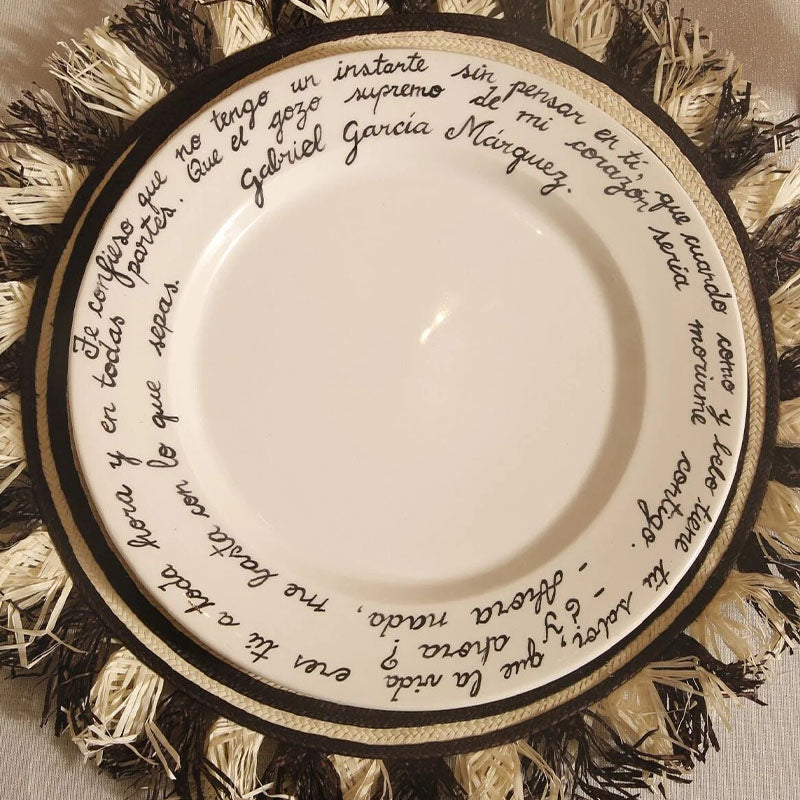 Te confieso que no tengo un instante sin pensar en ti, que cuando como y bebo tiene tu sabor, que la vida eres tú a toda hora y en todas partes. Que el gozo supremo de mi corazón sería morirme contigo.
- ¿y ahora?
- Ahora nada, me basta con lo que sepas.
Gabriel García Márquez.